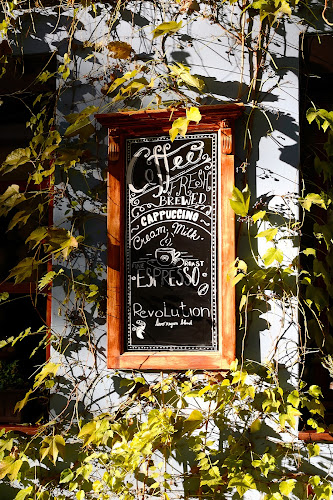 Coffee
FRESH
BREWED
CAPPUCCINO
Cream, Milk
ROAST
ESPRESSO
Revolution